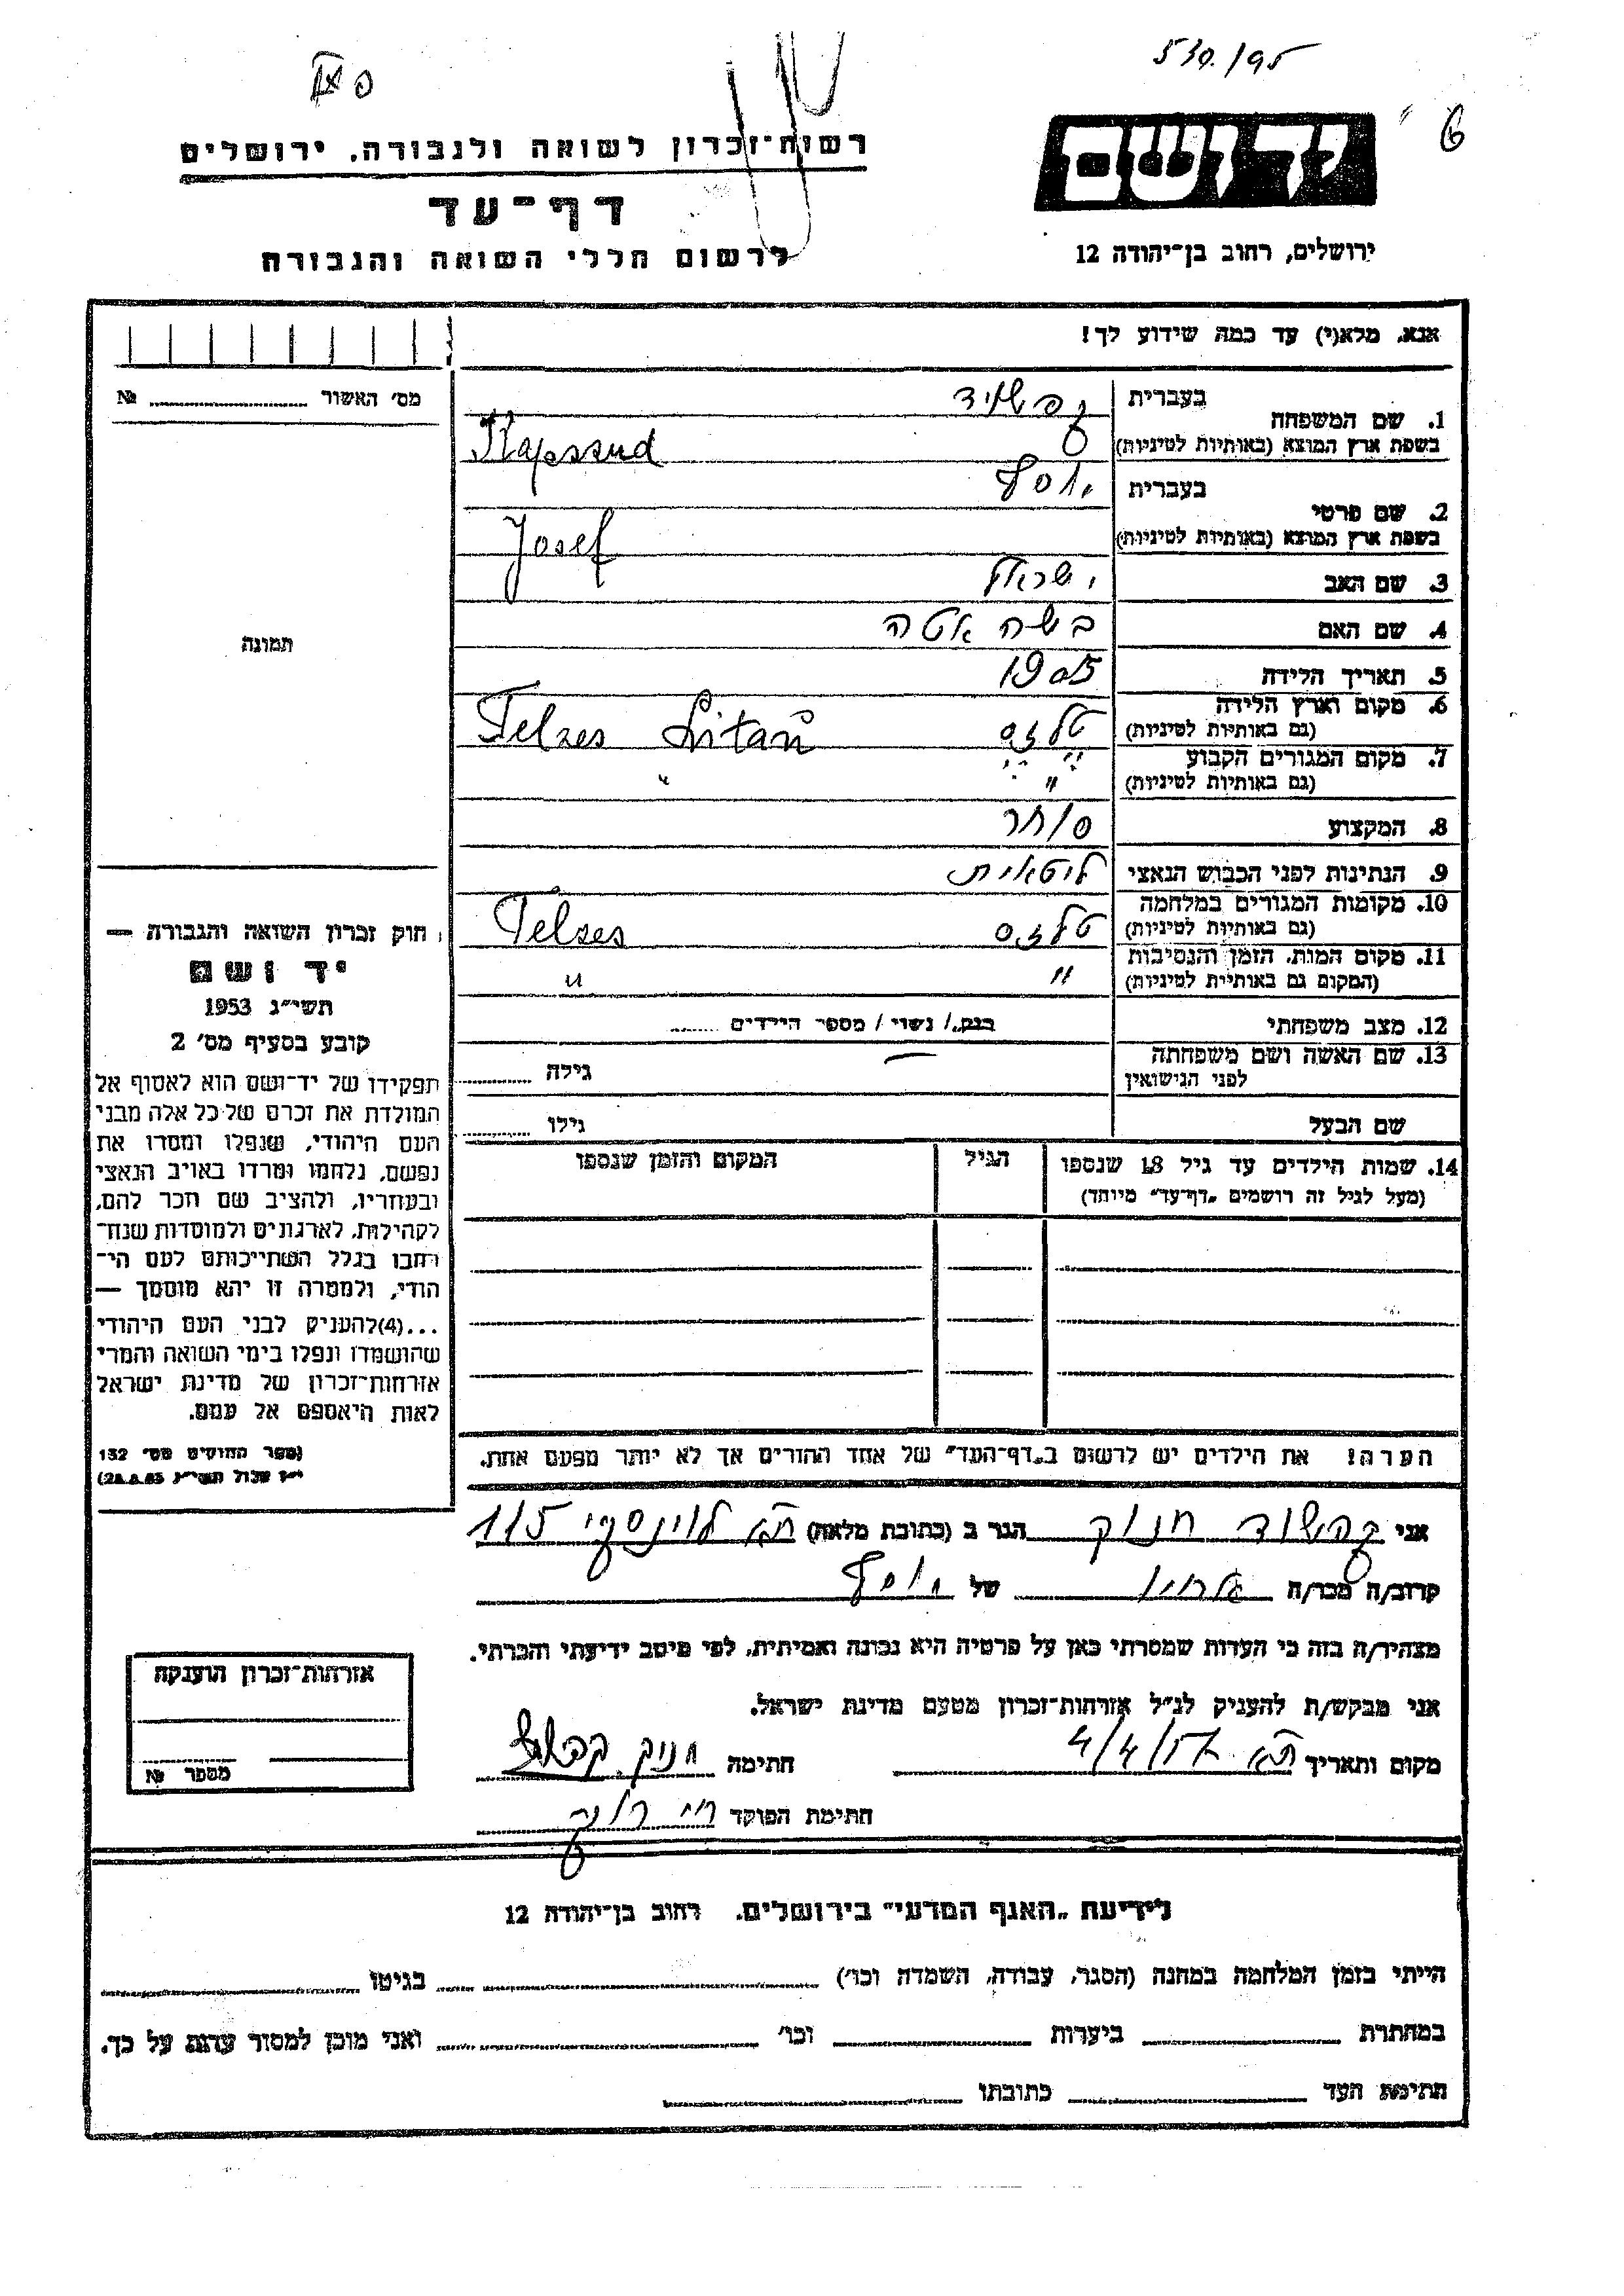 530/95
6
יד ושם
ירושלים, רחוב בן־יהודה 12
רשות־זכרון לשואה ולגבורה, ירושלים
דף־עד
לרשום חללי השואה והגבורה
אנא, מלא(י) עד כמה שידוע לך!
מס׳ האשור № 
1. שם המשפחה
בעברית
בשפת ארץ המוצא (באותיות לטיניות)
2. שם פרטי
בעברית יוסף
בשפת ארץ המוצא (באותיות לטיניות) Josef
3. שם האב ישראל
4. שם האם בשה אטה
5. תאריך הלידה 1905
6. מקום וארץ הלידה
(גם באותיות לטיניות) טלזס Telzes
7. מקום המגורים הקבוע
(גם באותיות לטיניות) " "
8. המקצוע סוחר
9. הנתינות לפני הכבוש הנאצי ליטאית
10. מקומות המגורים במלחמה
(גם באותיות לטיניות) טלזס Telzes
11. מקום המות, הזמן והנסיבות
(המקום גם באותיות לטיניות) " "
12. מצב משפחתי רווק / נשוי / מספר הילדים
13. שם האשה ושם משפחתה
לפני הנישואין — גילה
שם הבעל גילו
14. שמות הילדים עד גיל 18 שנספו הגיל המקום והזמן שנספו
(מעל לגיל זה רושמים „דף־עד" מיוחד)
הערה! את הילדים יש לרשום ב„דף־העד" של אחד ההורים אך לא יותר מפעם אחת.
תמונה
חוק זכרון השואה והגבורה —
יד ושם
תשי״ג 1953
קובע בסעיף מס׳ 2
תפקידו של יד־ושם הוא לאסוף אל
המולדת את זכרם של כל אלה מבני
העם היהודי, שנפלו ומסרו את
נפשם, נלחמו ומרדו באויב הנאצי
ובעוזריו, ולהציב שם וזכר להם,
לקהילות, לארגונים ולמוסדות שנח־
רבו בגלל השתייכותם לעם הי־
הודי, ולמטרה זו יהא מוסמך —
...(4)להעניק לבני העם היהודי
שהושמדו ונפלו בימי השואה והמרי
אזרחות־זכרון של מדינת ישראל
לאות היאספם אל עמם.
(ספר החוקים מס׳ 132
אני חנוך הגר ב (כתובת מלאה) ת״א לוינסקי 115
קרוב/ה מכר/ה של יוסף
מצהיר/ה בזה כי העדות שמסרתי כאן על פרטיה היא נכונה ואמיתית, לפי מיטב ידיעתי והכרתי.
אני מבקש/ת להעניק לנ״ל אזרחות־זכרון מטעם מדינת ישראל.
מקום ותאריך ת״א חתימה חנוך
חתימת הפוקד
אזרחות־זכרון הוענקה
מספר №
לידיעת „האגף המדעי" בירושלים, רחוב בן־יהודה 12
הייתי בזמן המלחמה במחנה (הסגר, עבודה, השמדה וכו׳) בגיטו
במחתרת ביערות וכו׳ ואני מוכן למסור עדות על כך.
חתימת העד כתובתו